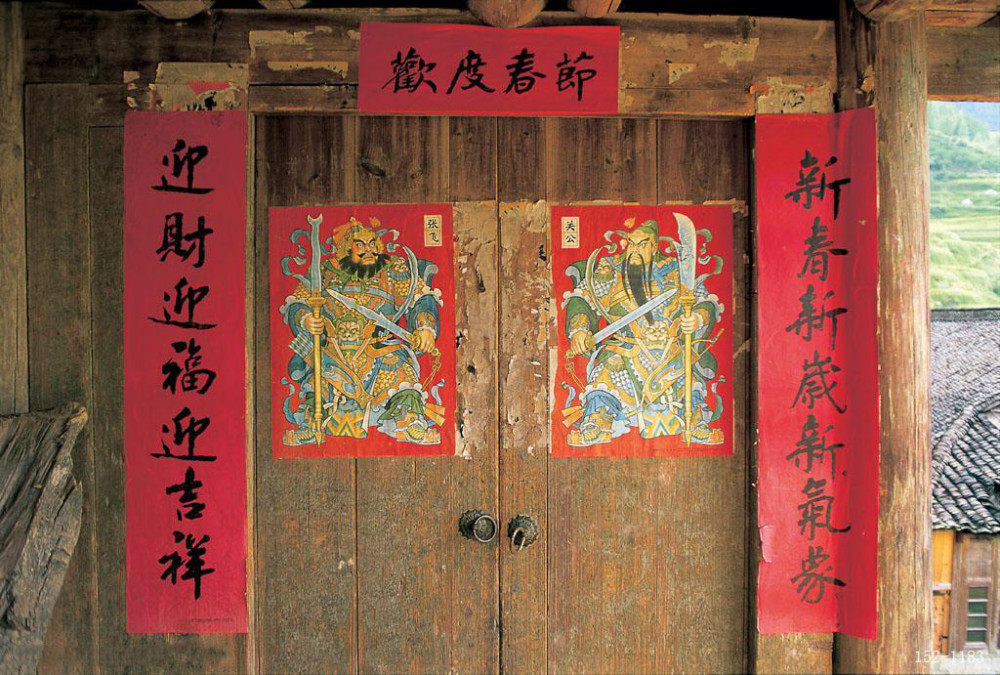 歡度春節
新春新歲新氣象
迎財迎福迎吉祥
张飞
关公
152-1183